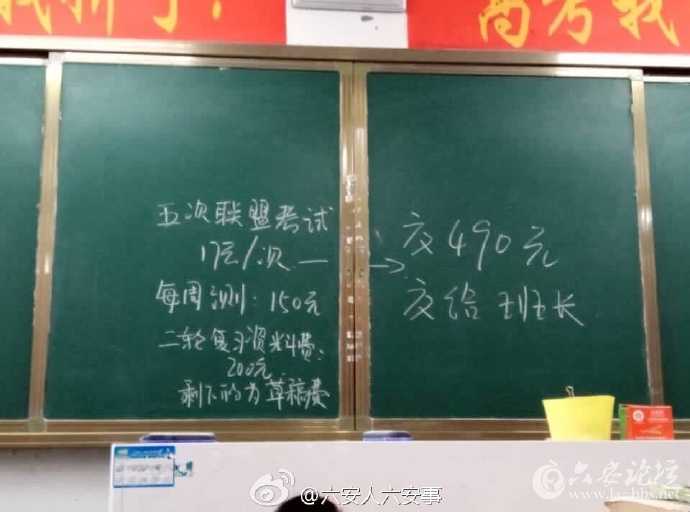 高考我
五次联盟考试
17元/次 —→
每周测：150元
二轮复习资料费：
200元
剩下的为草稿费
交490元
交给班长
@六安人六安事
六安论坛
luanbbs.net